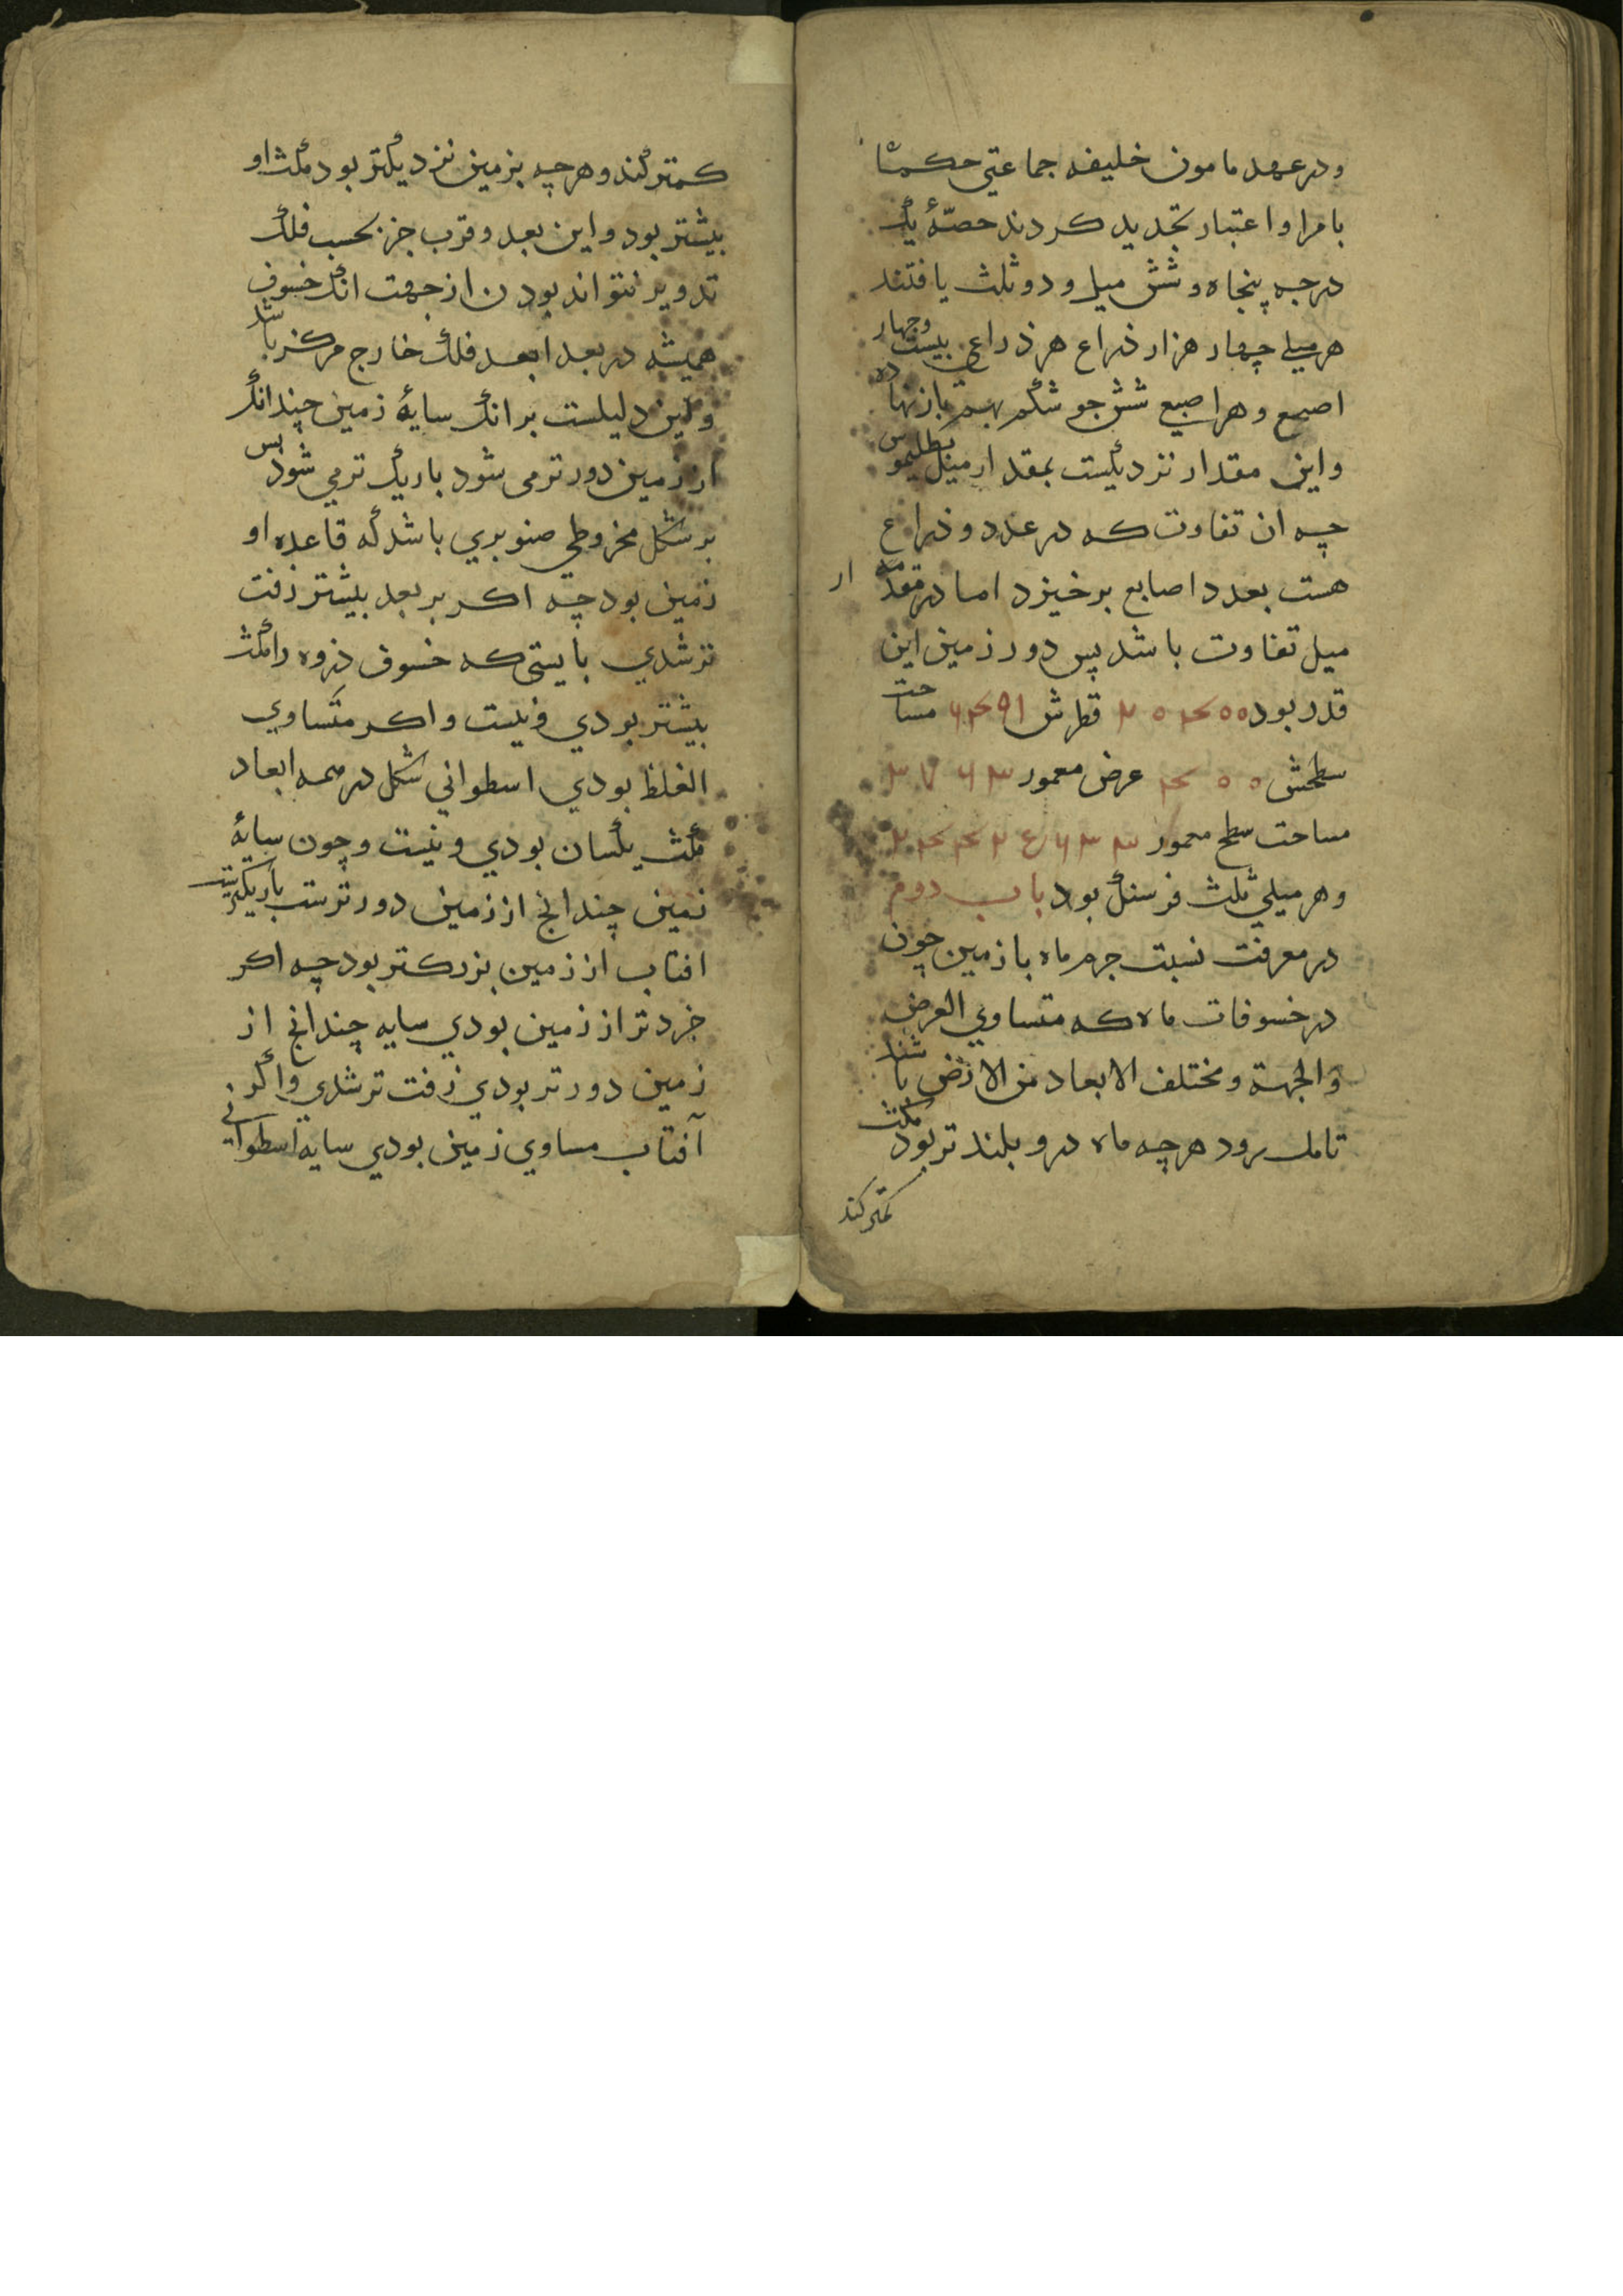 و در عهد مامون خلیفه جماعتی حکما
بامر او اعتبار تجدید کردند حصّهٔ یک
درجه پنجاه و شش میل و دو ثلث یافتند
هر میلے چهار هزار ذراع هر ذراعی بیست وچهار
اصبع و هر اصبعی شش جو شکم بهم باز نهاده
و این مقدار نزدیکست بمقدار میل بطلیموس
چه ان تفاوت که در عدد و ذراع
هست بعدد اصابع برخیزد اما در مقدار
میل تفاوت باشد پس دور زمین این
قدر بود قطرش مساحت
سطحش عرض معمور
مساحت سطح معمور
و هر میلی ثلث فرسنک بود باب دوم
در معرفت نسبت جرم ماه با زمین چون
در خسوفات ماه که متساوي العرض
والجهة و مختلف الابعاد من الارض باشد
تامل رود هرچه ماه درو بلندتر بود مکث
کمتر کند
کمتر کند و هرچه بزمین نزدیکتر بود مکث او
بیشتر بود و این بعد و قرب جز بحسب فلک
تدویر نتواند بودن از جهت انک خسوف
همیشه در بعد ابعد فلک خارج مرکز باشد
و این دلیلست بر انک سایهٔ زمین چندانک
از زمین دورتر می شود باریک تر می شود پس
بر شکل مخروطی صنوبري باشد که قاعده او
زمین بود چه اکر بر بعد بیشتر زفت
تر شدي بایستی که خسوف ذروه را مکث
بیشتر بودي و نیست و اکر متساوي
الغلظ بودي اسطواني شکل در همه ابعاد
مکث یکسان بودي و نیست و چون سایهٔ
زمین چندانچ از زمین دورترست باریکترست
افتاب از زمین بزرکتر بود چه اکر
خردتر از زمین بودي سایه چندانچ از
زمین دورتر بودي زفت تر شدي و اکر
آفتاب مساوي زمین بودي سایه اسطوانی